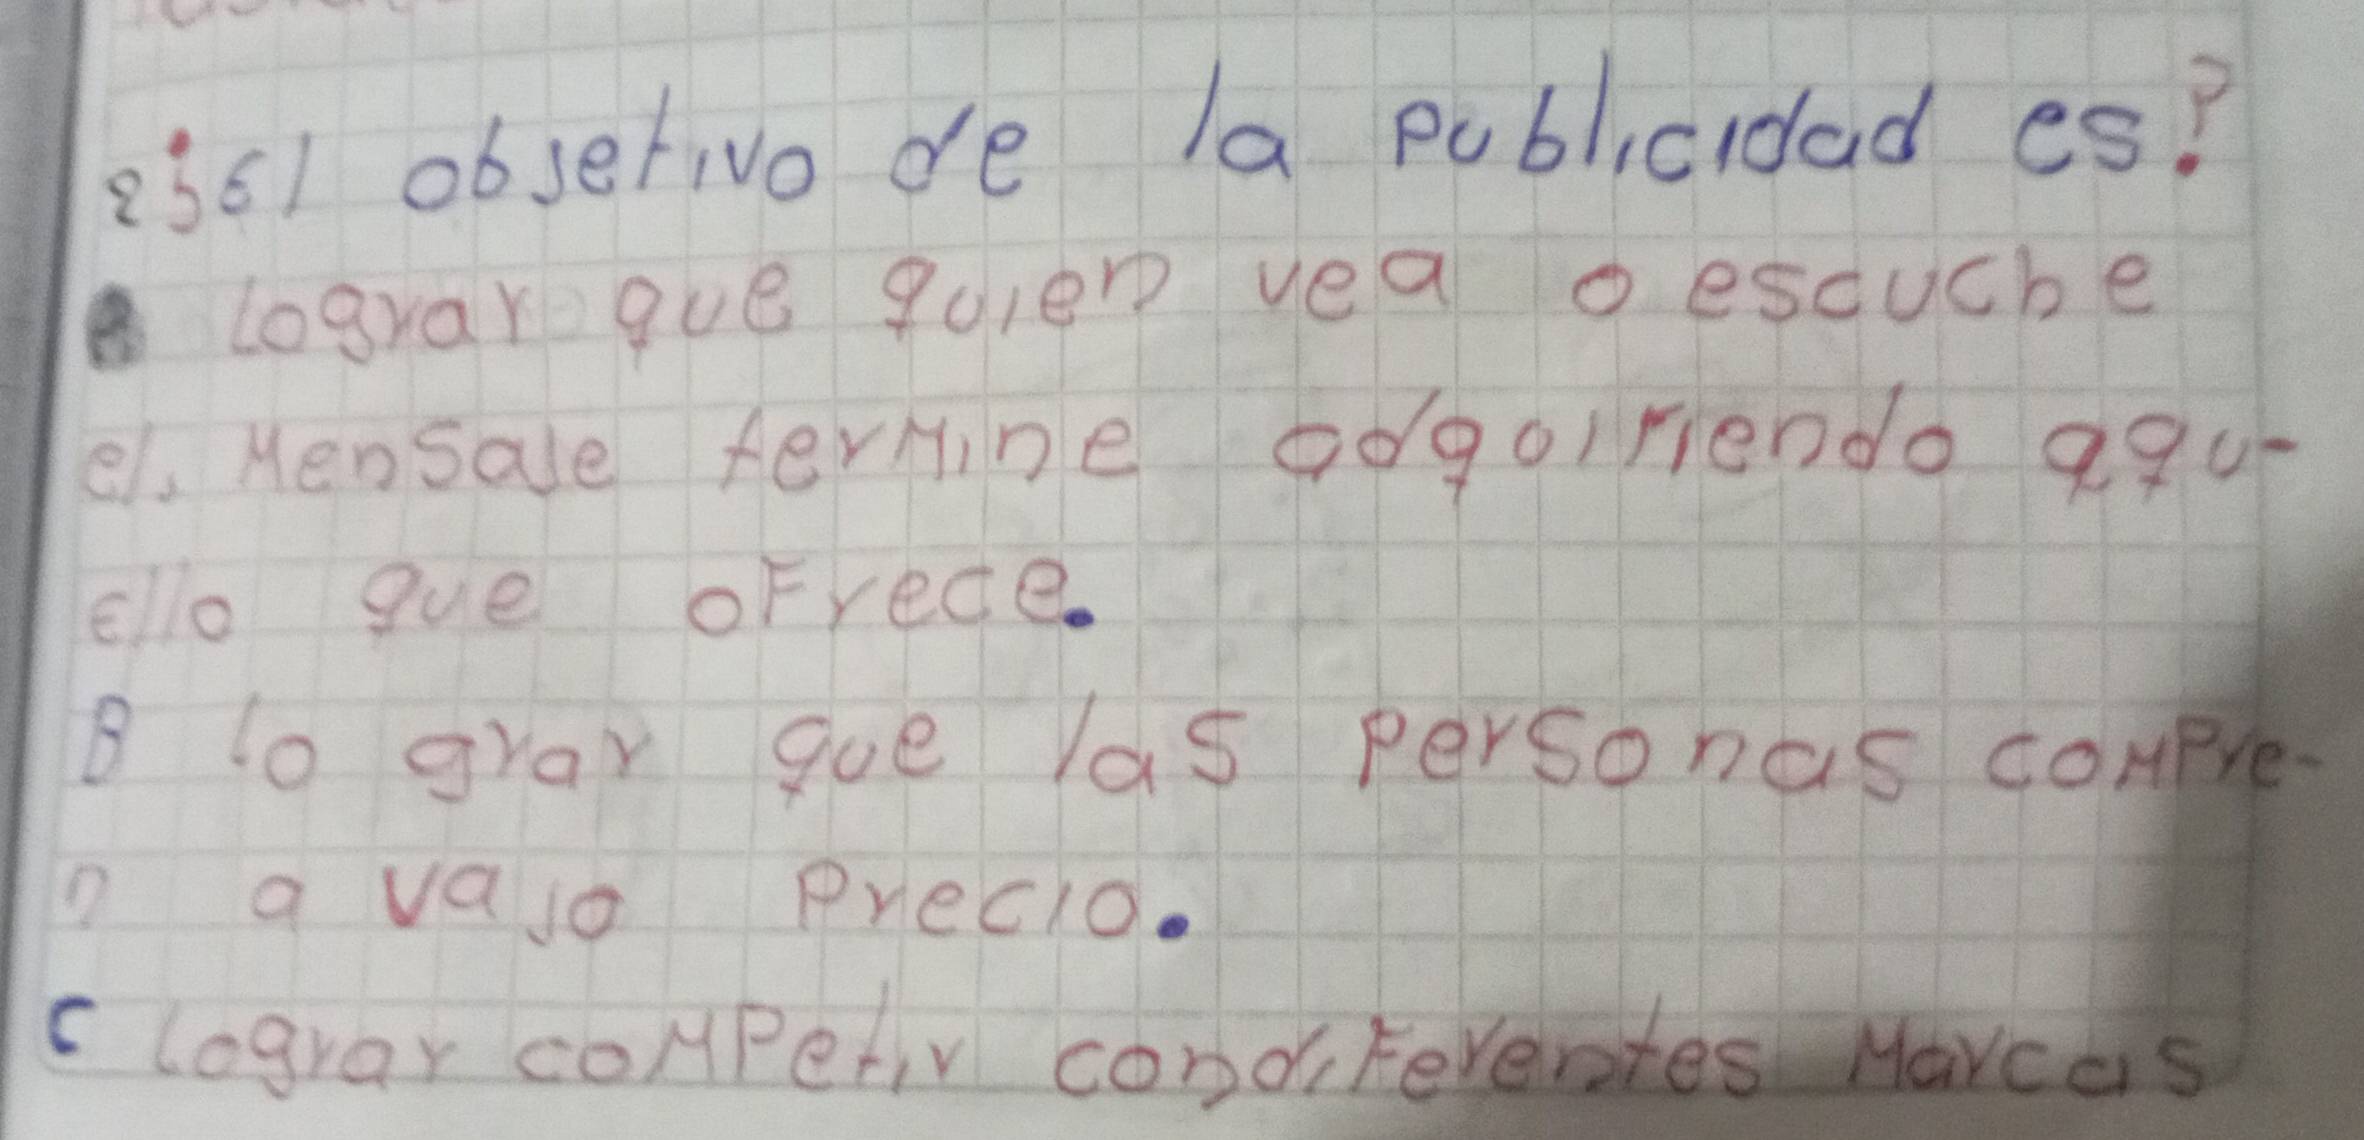 2 ¿El objetivo de la publicidad es?
A Lograr que quien vea o escuche
el. Mensaje termine adquiriendo aqu-
ello que ofrece.
B lo grar que las personas compre-
n a vajo precio.
C Lograr competir con diferentes Marcas